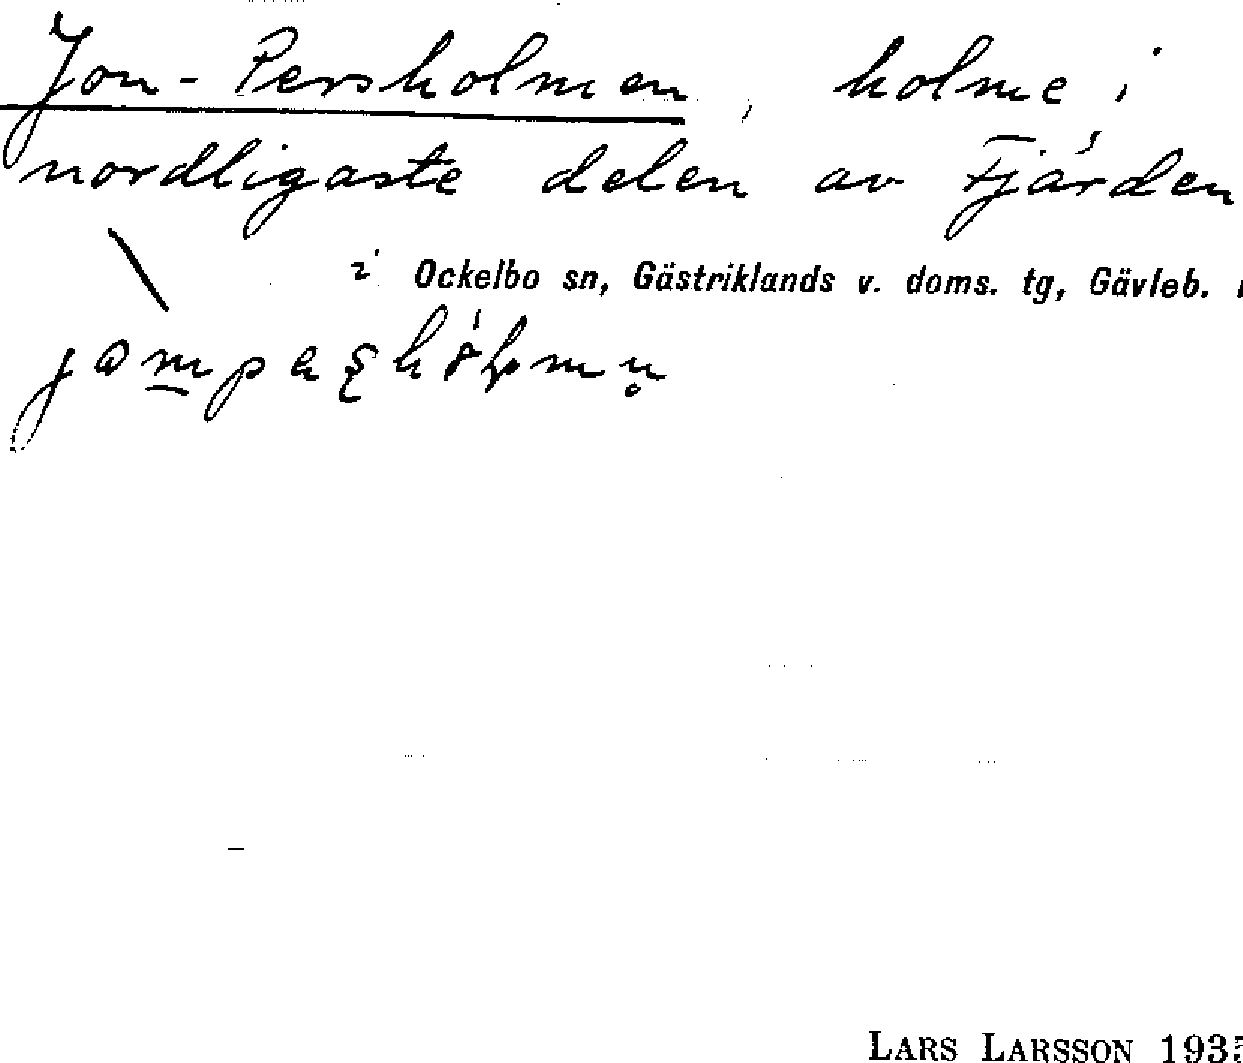 Jon-Persholmen, holme i
nordligaste delen av Fjärden
i Ockelbo sn, Gästriklands v. doms. tg, Gävleb.
LARS LARSSON 1935